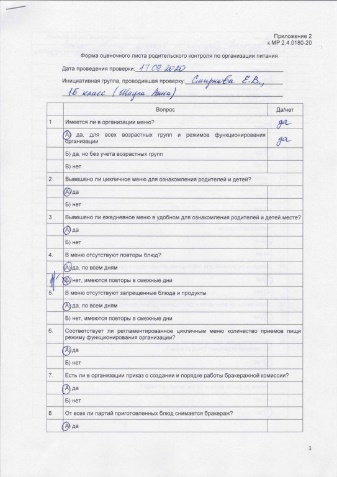 Приложение 2
к МР 2.4.0180-20
Форма оценочного листа родительского контроля по организации питания
Дата проведения проверки: 17.09.2020
Инициативная группа, проводившая проверку: Смирнова Е.В.,
1Б класс ( Анна)
Вопрос Да/нет
1 Имеется ли в организации меню? да
А) да, для всех возрастных групп и режимов функционирования организации да
Б) да, но без учета возрастных групп
2. Вывешено ли цикличное меню для ознакомления родителей и детей?
А) да
Б) нет
3. Вывешено ли ежедневное меню в удобном для ознакомления родителей и детей месте?
А) да
Б) нет
4. В меню отсутствуют повторы блюд?
А) да, по всем дням
Б) нет, имеются повторы в смежные дни
5. В меню отсутствуют запрещенные блюда и продукты
А) да, по всем дням
Б) нет, имеются повторы в смежные дни
6. Соответствует ли регламентированное цикличным меню количество приемов пищи
режиму функционирования организации?
А) да
Б) нет
7. Есть ли в организации приказ о создании и порядке работы бракеражной комиссии?
А) да
Б) нет
8 От всех ли партий приготовленных блюд снимается бракераж?
А) да
1